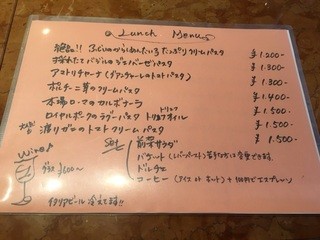 Lunch Menu
絶品!! ふじいのからしめんたいこたっぷりクリームパスタ ¥1.200-
採れたてバジルのジェノベーゼパスタ ¥1.300-
アマトリチャーナ(グアンチャーレのトマトパスタ) ¥1.300-
ポルチーニ茸のクリームパスタ ¥1.400-
本場ローマのカルボナーラ ¥1.500-
ロイヤルポークのラグーパスタ トリュフオイル ¥1.500-
渡りガニのトマトクリームパスタ ¥1.500-
Wine♪
グラス ¥600〜
Set
前菜サラダ
バケット
ドルチェ
コーヒー (アイス or ホット) +100円でエスプレッソ
イタリアビール冷えてます!!